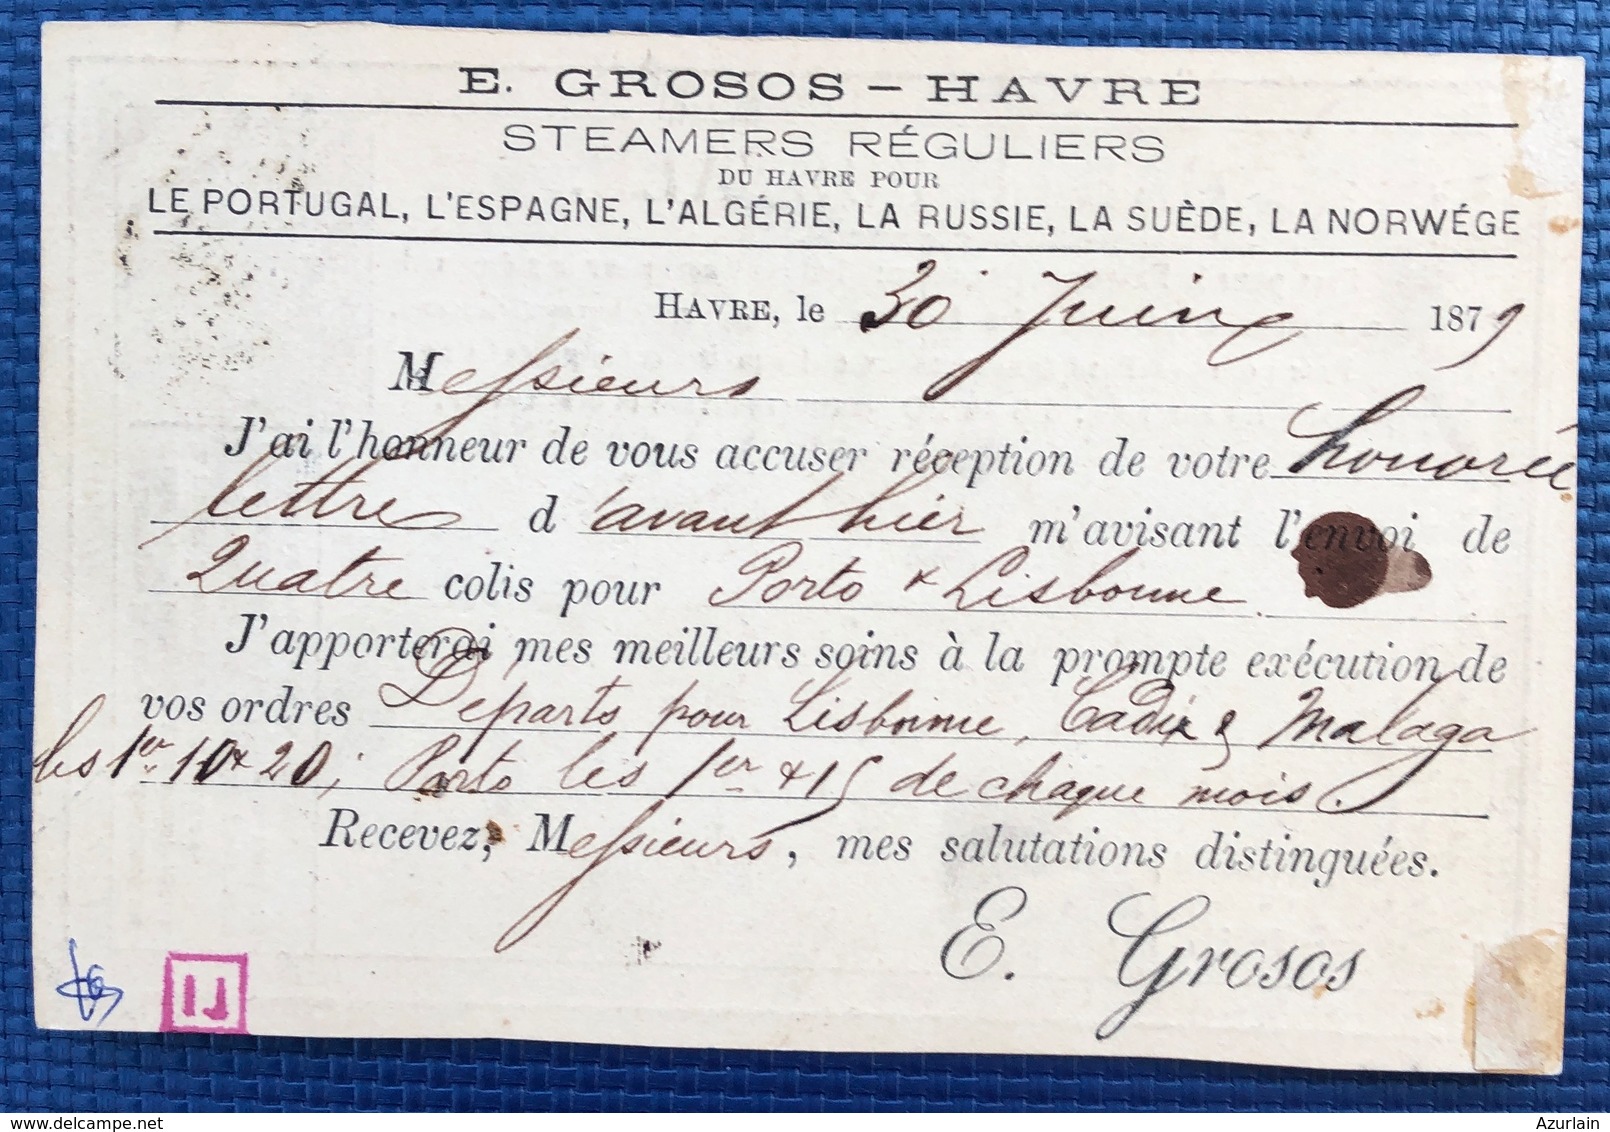 E. GROSOS – HAVRE
STEAMERS RÉGULIERS
DU HAVRE POUR
LE PORTUGAL, L'ESPAGNE, L'ALGÉRIE, LA RUSSIE, LA SUÈDE, LA NORWÉGE
HAVRE, le 30 Juin 1879
Messieurs
J'ai l'honneur de vous accuser réception de votre honorée
lettre d'avant hier m'avisant l'envoi de
Quatre colis pour Porto & Lisbonne
J'apporterai mes meilleurs soins à la prompte exécution de
vos ordres Départs pour Lisbonne, Cadix & Malaga
les 1er 10 & 20; Porto les 1er & 15 de chaque mois.
Recevez, Messieurs, mes salutations distinguées.
E. Grosos
delcampe.net
Azurlain